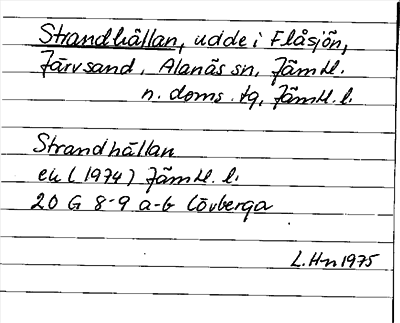 Strandhällan, udde i Flåsjön,
Järvsand, Alanäs sn, Jämtl.
n. doms. tg, Jämtl. l.
Strandhällan
ek (1974) Jämtl. l.
20 G 8-9 a-b Lövberga
L. Hn 1975